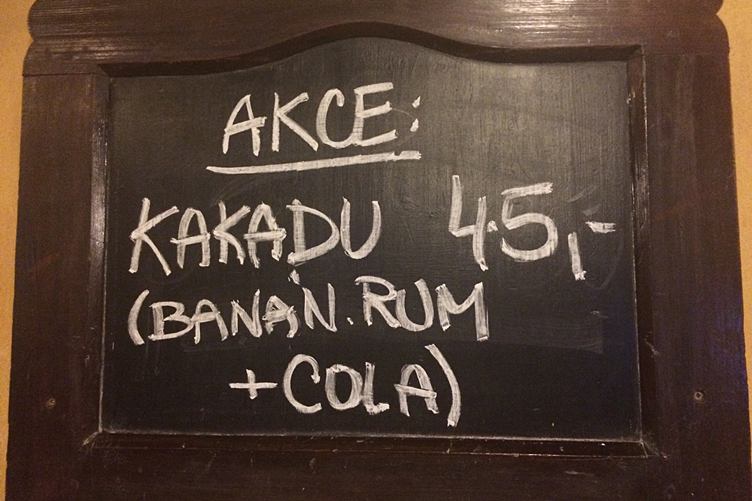 AKCE:
KAKADU 45,-
(BANAN.RUM
+COLA)